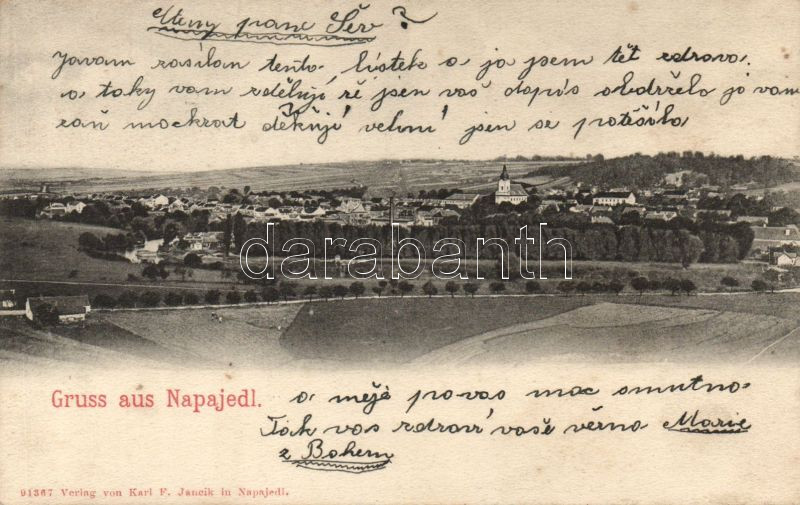 Cteny pane Šev ?
Javam zasilan tento. listek a ja jsem též zdrava.
a taky vam zděluji že jsen vaš dopis obdržela ja vam
zaň mockrat děkuji velmi jsen se potěšila
darabanth
Gruss aus Napajedl.
a mějá po vas moc smutno
Tak vas zdravi vaše věrna Marie
z Bohem
91367 Verlag von Karl F. Jancik in Napajedl.